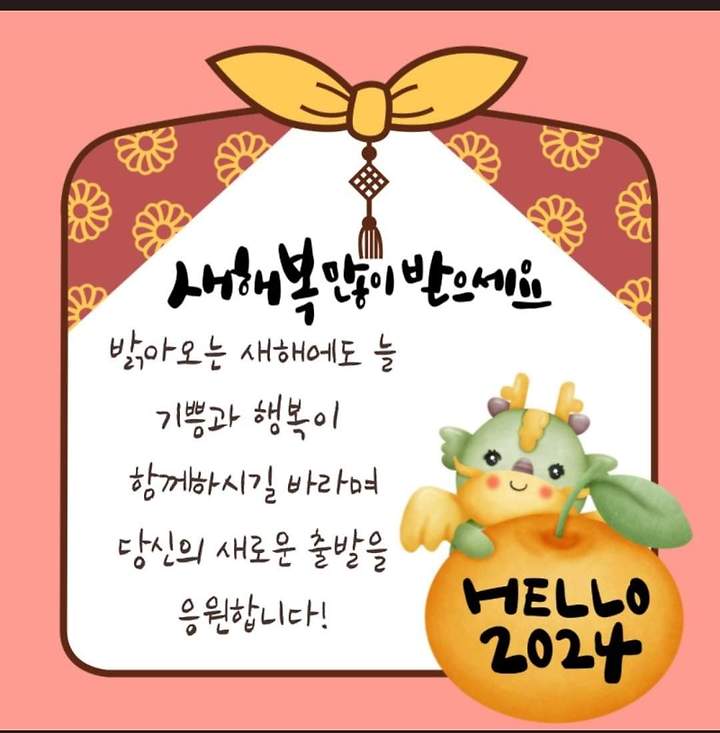 새해복 많이 받으세요
밝아오는 새해에도 늘
기쁨과 행복이
함께하시길 바라며
당신의 새로운 출발을
응원합니다!
HELLO
2024